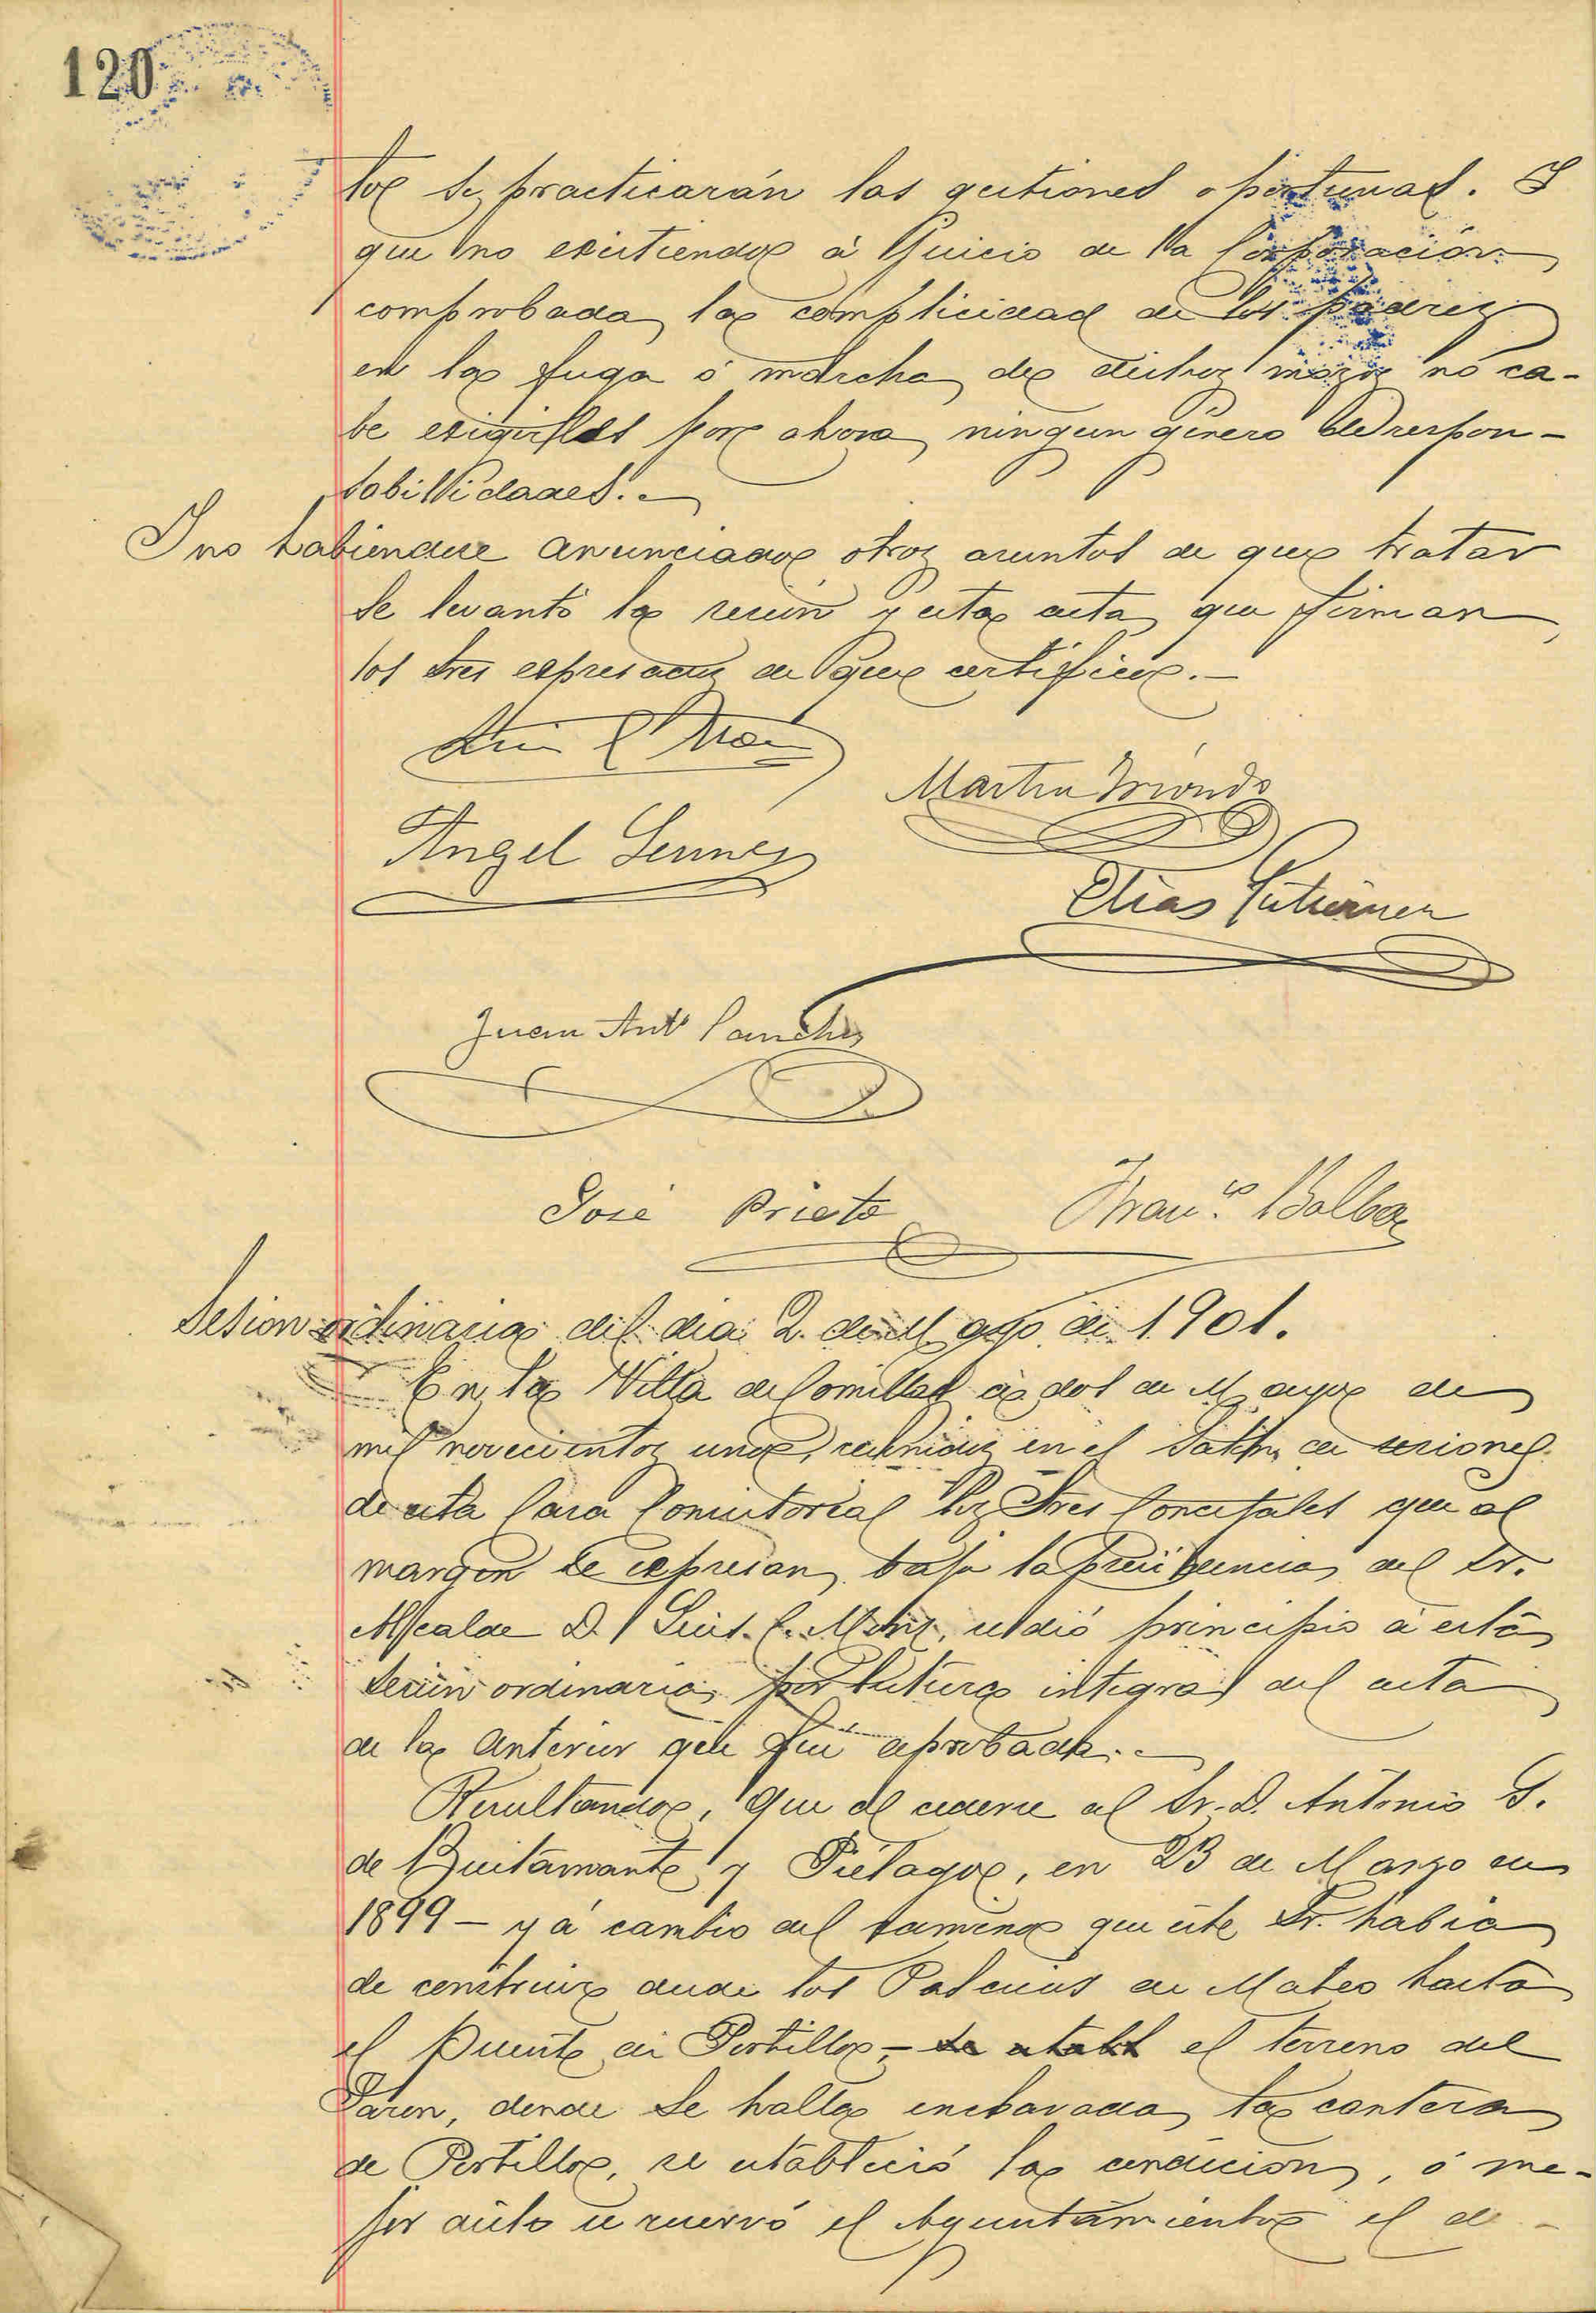 120
tos se practicarán las gestiones oportunas. Y
que no existiendo á juicio de la Corporación
comprobada la complicidad de los padres
en la fuga ó marcha de dichos mozos no ca-
be exigirles por ahora ningun género de respon-
sabilidades.
Y no habiendose anunciado otros asuntos de que tratar
se levantó la sesión y esta acta que firman
los Sres expresados de que certifico.-
Martin Yriondo
Angel
Elias Gutierrez
Juan Antº Sanchez
José Prieto Franco Balbas
Sesion ordinaria del dia 2 de Mayo de 1901.
En la Villa de Comillas á dos de Mayo de
mil novecientos uno, reunidos en el Salón de sesiones
de esta Casa Consistorial los Sres Concejales que al
margen se expresan bajo la presidencia del Sr.
Alcalde D. Luis C. se dió principio á esta
sesión ordinaria por lectura integra del acta
de la anterior que fué aprobada.
Resultando, que al cederse al Sr. D. Antonio G.
de Bustamante y Piélago, en 23 de Marzo de
1899 - y á cambio del camino que este Sr. habia
de construir desde los Palacios de Mateo hasta
el Puente de Portillo, - el terreno del
donde se halla enclavada la cantera
de Portillo, se estableció la condicion, ó me-
jor dicho se reservó el Ayuntamiento el de-